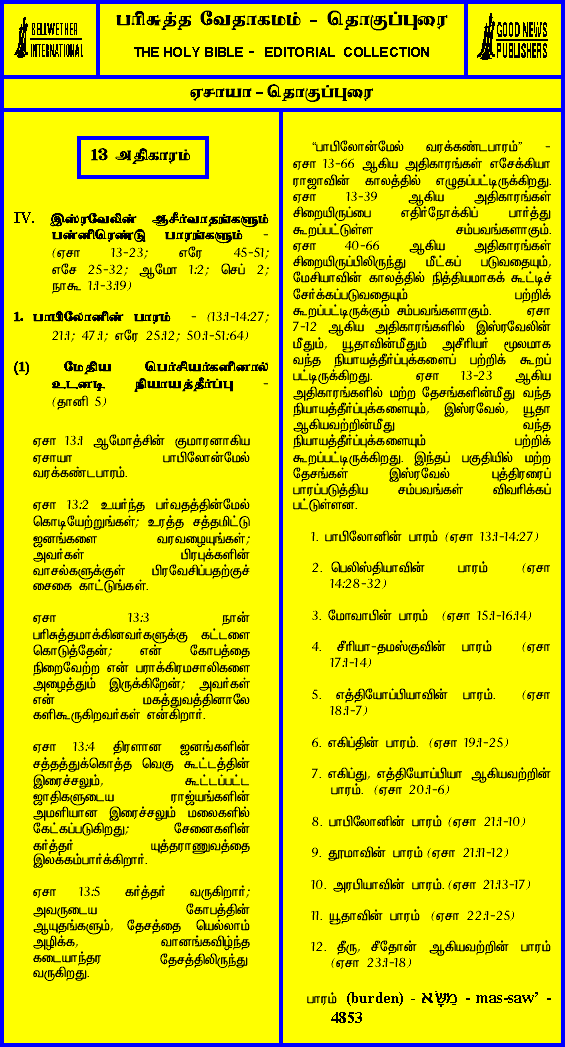 BELLWETHER
INTERNATIONAL
பரிசுத்த வேதாகமம் - தொகுப்புரை
THE HOLY BIBLE - EDITORIAL COLLECTION
GOOD NEWS
PUBLISHERS
ஏசாயா - தொகுப்புரை
13 அதிகாரம்
IV. இஸ்ரவேலின் ஆசீர்வாதங்களும்
பன்னிரெண்டு பாரங்களும் -
(ஏசா 13-23; எரே 45-51;
எசே 25-32; ஆமோ 1:2; செப் 2;
நாகூ 1:1-3:19)
1. பாபிலோனின் பாரம் - (13:1-14:27;
21:1; 47:1; எரே 25:12; 50:1-51:64)
(1) மேதிய பெர்சியர்களினால்
உடனடி நியாயத்தீர்ப்பு -
(தானி 5)
ஏசா 13:1 ஆமோத்சின் குமாரனாகிய
ஏசாயா பாபிலோன்மேல்
வரக்கண்டபாரம்.
ஏசா 13:2 உயர்ந்த பர்வதத்தின்மேல்
கொடியேற்றுங்கள்; உரத்த சத்தமிட்டு
ஜனங்களை வரவழையுங்கள்;
அவர்கள் பிரபுக்களின்
வாசல்களுக்குள் பிரவேசிப்பதற்குச்
சைகை காட்டுங்கள்.
ஏசா 13:3 நான்
பரிசுத்தமாக்கினவர்களுக்கு கட்டளை
கொடுத்தேன்; என் கோபத்தை
நிறைவேற்ற என் பராக்கிரமசாலிகளை
அழைத்தும் இருக்கிறேன்; அவர்கள்
என் மகத்துவத்தினாலே
களிகூருகிறவர்கள் என்கிறார்.
ஏசா 13:4 திரளான ஜனங்களின்
சத்தத்துக்கொத்த வெகு கூட்டத்தின்
இரைச்சலும், கூட்டப்பட்ட
ஜாதிகளுடைய ராஜ்யங்களின்
அமளியான இரைச்சலும் மலைகளில்
கேட்கப்படுகிறது; சேனைகளின்
கர்த்தர் யுத்தராணுவத்தை
இலக்கம்பார்க்கிறார்.
ஏசா 13:5 கர்த்தர் வருகிறார்;
அவருடைய கோபத்தின்
ஆயுதங்களும், தேசத்தை யெல்லாம்
அழிக்க, வானங்கவிழ்ந்த
கடையாந்தர தேசத்திலிருந்து
வருகிறது.
“பாபிலோன்மேல் வரக்கண்டபாரம்” -
ஏசா 13-66 ஆகிய அதிகாரங்கள் எசேக்கியா
ராஜாவின் காலத்தில் எழுதப்பட்டிருக்கிறது.
ஏசா 13-39 ஆகிய அதிகாரங்கள்
சிறையிருப்பை எதிர்நோக்கிப் பார்த்து
கூறப்பட்டுள்ள சம்பவங்களாகும்.
ஏசா 40-66 ஆகிய அதிகாரங்கள்
சிறையிருப்பிலிருந்து மீட்கப் படுவதையும்,
மேசியாவின் காலத்தில் நித்தியமாகக் கூட்டிச்
சேர்க்கப்படுவதையும் பற்றிக்
கூறப்பட்டிருக்கும் சம்பவங்களாகும். ஏசா
7-12 ஆகிய அதிகாரங்களில் இஸ்ரவேலின்
மீதும், யூதாவின்மீதும் அசீரியர் மூலமாக
வந்த நியாயத்தீர்ப்புக்களைப் பற்றிக் கூறப்
பட்டிருக்கிறது. ஏசா 13-23 ஆகிய
அதிகாரங்களில் மற்ற தேசங்களின்மீது வந்த
நியாயத்தீர்ப்புக்களையும், இஸ்ரவேல், யூதா
ஆகியவற்றின்மீது வந்த
நியாயத்தீர்ப்புக்களையும் பற்றிக்
கூறப்பட்டிருக்கிறது. இந்தப் பகுதியில் மற்ற
தேசங்கள் இஸ்ரவேல் புத்திரரைப்
பாரப்படுத்திய சம்பவங்கள் விவரிக்கப்
பட்டுள்ளன.
1. பாபிலோனின் பாரம் (ஏசா 13:1-14:27)
2. பெலிஸ்தியாவின் பாரம் (ஏசா
14:28-32)
3. மோவாபின் பாரம் (ஏசா 15:1-16:14)
4. சீரியா-தமஸ்குவின் பாரம் (ஏசா
17:1-14)
5. எத்தியோப்பியாவின் பாரம். (ஏசா
18:1-7)
6. எகிப்தின் பாரம். (ஏசா 19:1-25)
7. எகிப்து, எத்தியோப்பியா ஆகியவற்றின்
பாரம். (ஏசா 20:1-6)
8. பாபிலோனின் பாரம் (ஏசா 21:1-10)
9. தூமாவின் பாரம் (ஏசா 21:11-12)
10. அரபியாவின் பாரம். (ஏசா 21:13-17)
11. யூதாவின் பாரம் (ஏசா 22:1-25)
12. தீரு, சீதோன் ஆகியவற்றின் பாரம்
(ஏசா 23:1-18)
பாரம் (burden) - מַשָּׂא - mas-saw’ -
4853